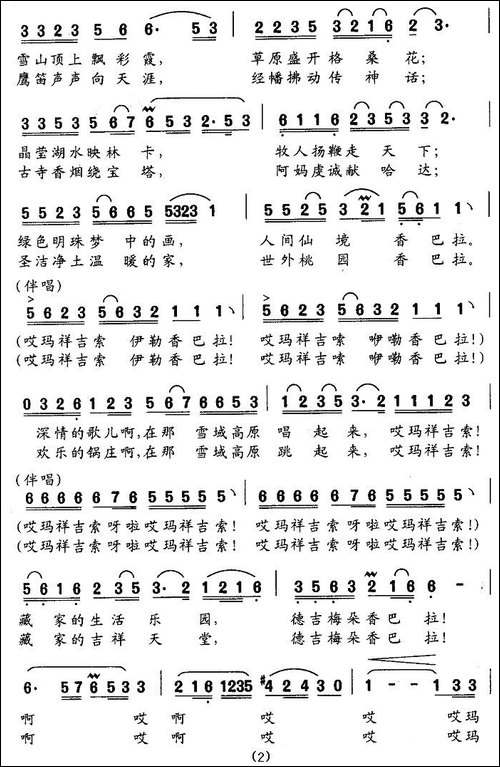 3 3 2 3 5 6 6· 5 3 | 2 2 3 5 3 2 1 6 2 3·
雪山顶上飘彩霞, 草原盛开格桑花;
鹰笛声声向天涯, 经幡拂动传神话;
3 3 5 3 5 6 7 6 5 3 2· 5 3 | 6 1 1 6 2 3 5 2 3 3·
晶莹湖水映林卡, 牧人扬鞭走天下;
古寺香烟绕宝塔, 阿妈虔诚献哈达;
5 5 2 3 5 6 6 5 5323 1 | 5 2 5 5 3 2 1 5 6 1 1
绿色明珠梦中的画, 人间仙境香巴拉。
圣洁净土温暖的家, 世外桃园香巴拉。
(伴唱)
5 6 3 2 5 6 3 2 1 1 1 | 5 6 3 2 5 6 3 2 1 1 1
(哎玛祥吉索 伊勒香巴拉! 哎玛祥吉索 咿嘞香巴拉!)
(哎玛祥吉索 伊勒香巴拉! 哎玛祥吉索 咿嘞香巴拉!)
0 3 2 6 1 2 3 5 6 7 6 6 5 3 | 1 2 3 5 3· 2 1 1 1 2 3
深情的歌儿啊,在那 雪域高原 唱起来, 哎玛祥吉索!
欢乐的锅庄啊,在那 雪域高原 跳起来, 哎玛祥吉索!
(伴唱)
6 6 6 6 6 7 6 5 5 5 5 5 | 6 6 6 6 6 6 7 6 5 5 5 5 5
(哎玛祥吉索呀啦哎玛祥吉索! 哎玛祥吉索呀啦哎玛祥吉索!)
(哎玛祥吉索呀啦哎玛祥吉索! 哎玛祥吉索呀啦哎玛祥吉索!)
5 6 1 6 2 3 5 3· 2 1 2 1 6 | 3 5 6 3 2 1 6 6 -
藏家的生活乐园, 德吉梅朵香巴拉!
藏家的吉祥天堂, 德吉梅朵香巴拉!
6· 5 7 6 5 3 3 | 2 1 6 1235 #4 2 4 3 0 | 1 - - 1 3 3
啊 哎 啊 哎 哎 哎玛
啊 哎 啊 哎 哎 哎玛
(2)